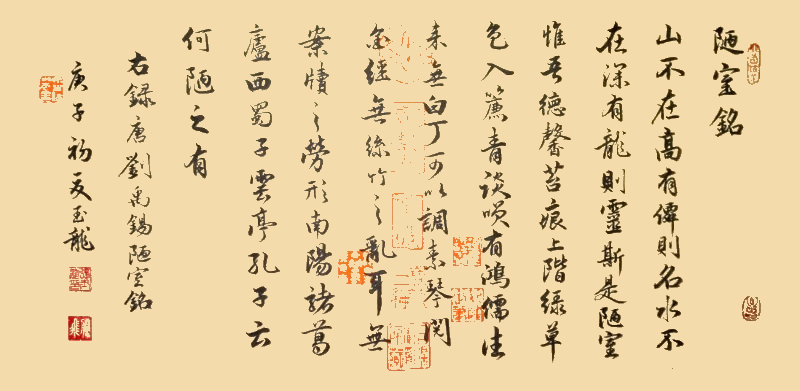 陋室銘
山不在高有僊則名水不
在深有龍則靈斯是陋室
惟吾德馨苔痕上階綠草
色入簾青談咲有鴻儒往
来無白丁可以調素琴閱
金經無絲竹之亂耳無
案牘之勞形南陽諸葛
廬西蜀子雲亭孔子云
何陋之有
右録唐劉禹錫陋室銘
庚子初夏玉龍